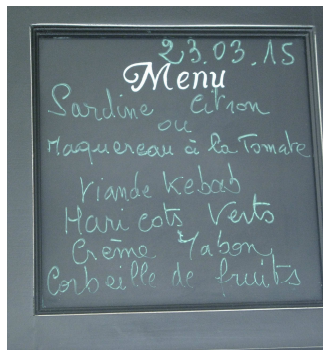 23.03.15
Menu
Sardine citron
ou
Maquereau à la Tomate
Viande Kebab
Haricots Verts
Crème Yabon
Corbeille de fruits